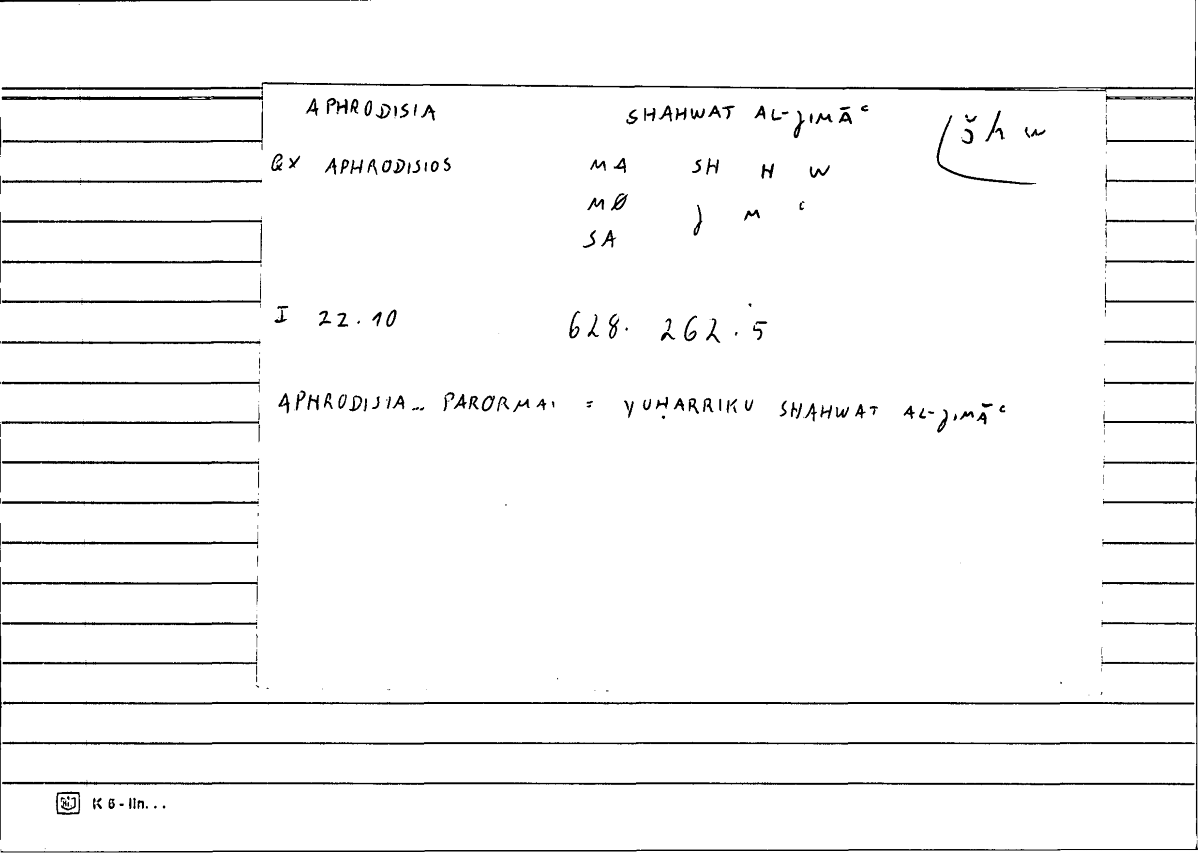 APHRODISIA SHAHWAT AL-JIMĀʿ šhw
QX APHRODISIOS MA SH H W
MØ J M ʿ
SA
I 22.10 628. 262.5
APHRODISIA... PARORMAI = YUḤARRIKU SHAHWAT AL-JIMĀʿ
K 6 - lin...